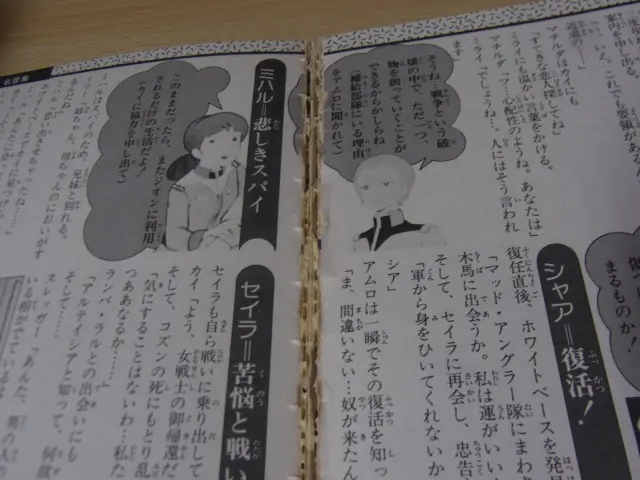 案内を申し出る。
近道の…
マチルダはカイにも
「すてきな恋人探してね」
ミライにも温かい言葉をかける。
マチルダ「フ…心配性のようね。あなたは」
ミライ「でしょうね…。人にはそう言われ
ます」
そうね…戦争という破
壊の中で、ただ一つ、
物を創っていくことが
できるからかしらね
(補給部隊にいる理由
をアムロに聞かれて)
シャア＝復活！
復任直後、ホワイトベースを発見
「マッド・アングラー隊にまわさ
木馬に出会うか。私は運がいい
そして、セイラに再会し、忠告
「軍から身をひいてくれないか
シア」
アムロは一瞬でその復活を知っ
「ま、間違いない…奴が来たん
まるものか！
名言集
ミハル＝悲しきスパイ
このままだったら、またジオンに利用
されるだけの生活だよ！
(カイに協力を申し出て)
ミハルはスパイのため、兄妹と別れる。
セイラ＝苦悩と戦い
セイラも自ら戦いに乗り出して
カイ「よう、女戦士の御帰還だ
そして、コズンの死にもとり乱
「気にすることはないわ…私た
つああなるか……」
ランバ・ラルとの出会いにも
「アルテイシアと知って、何故
そして……
スレッガー「あんた、男の人の